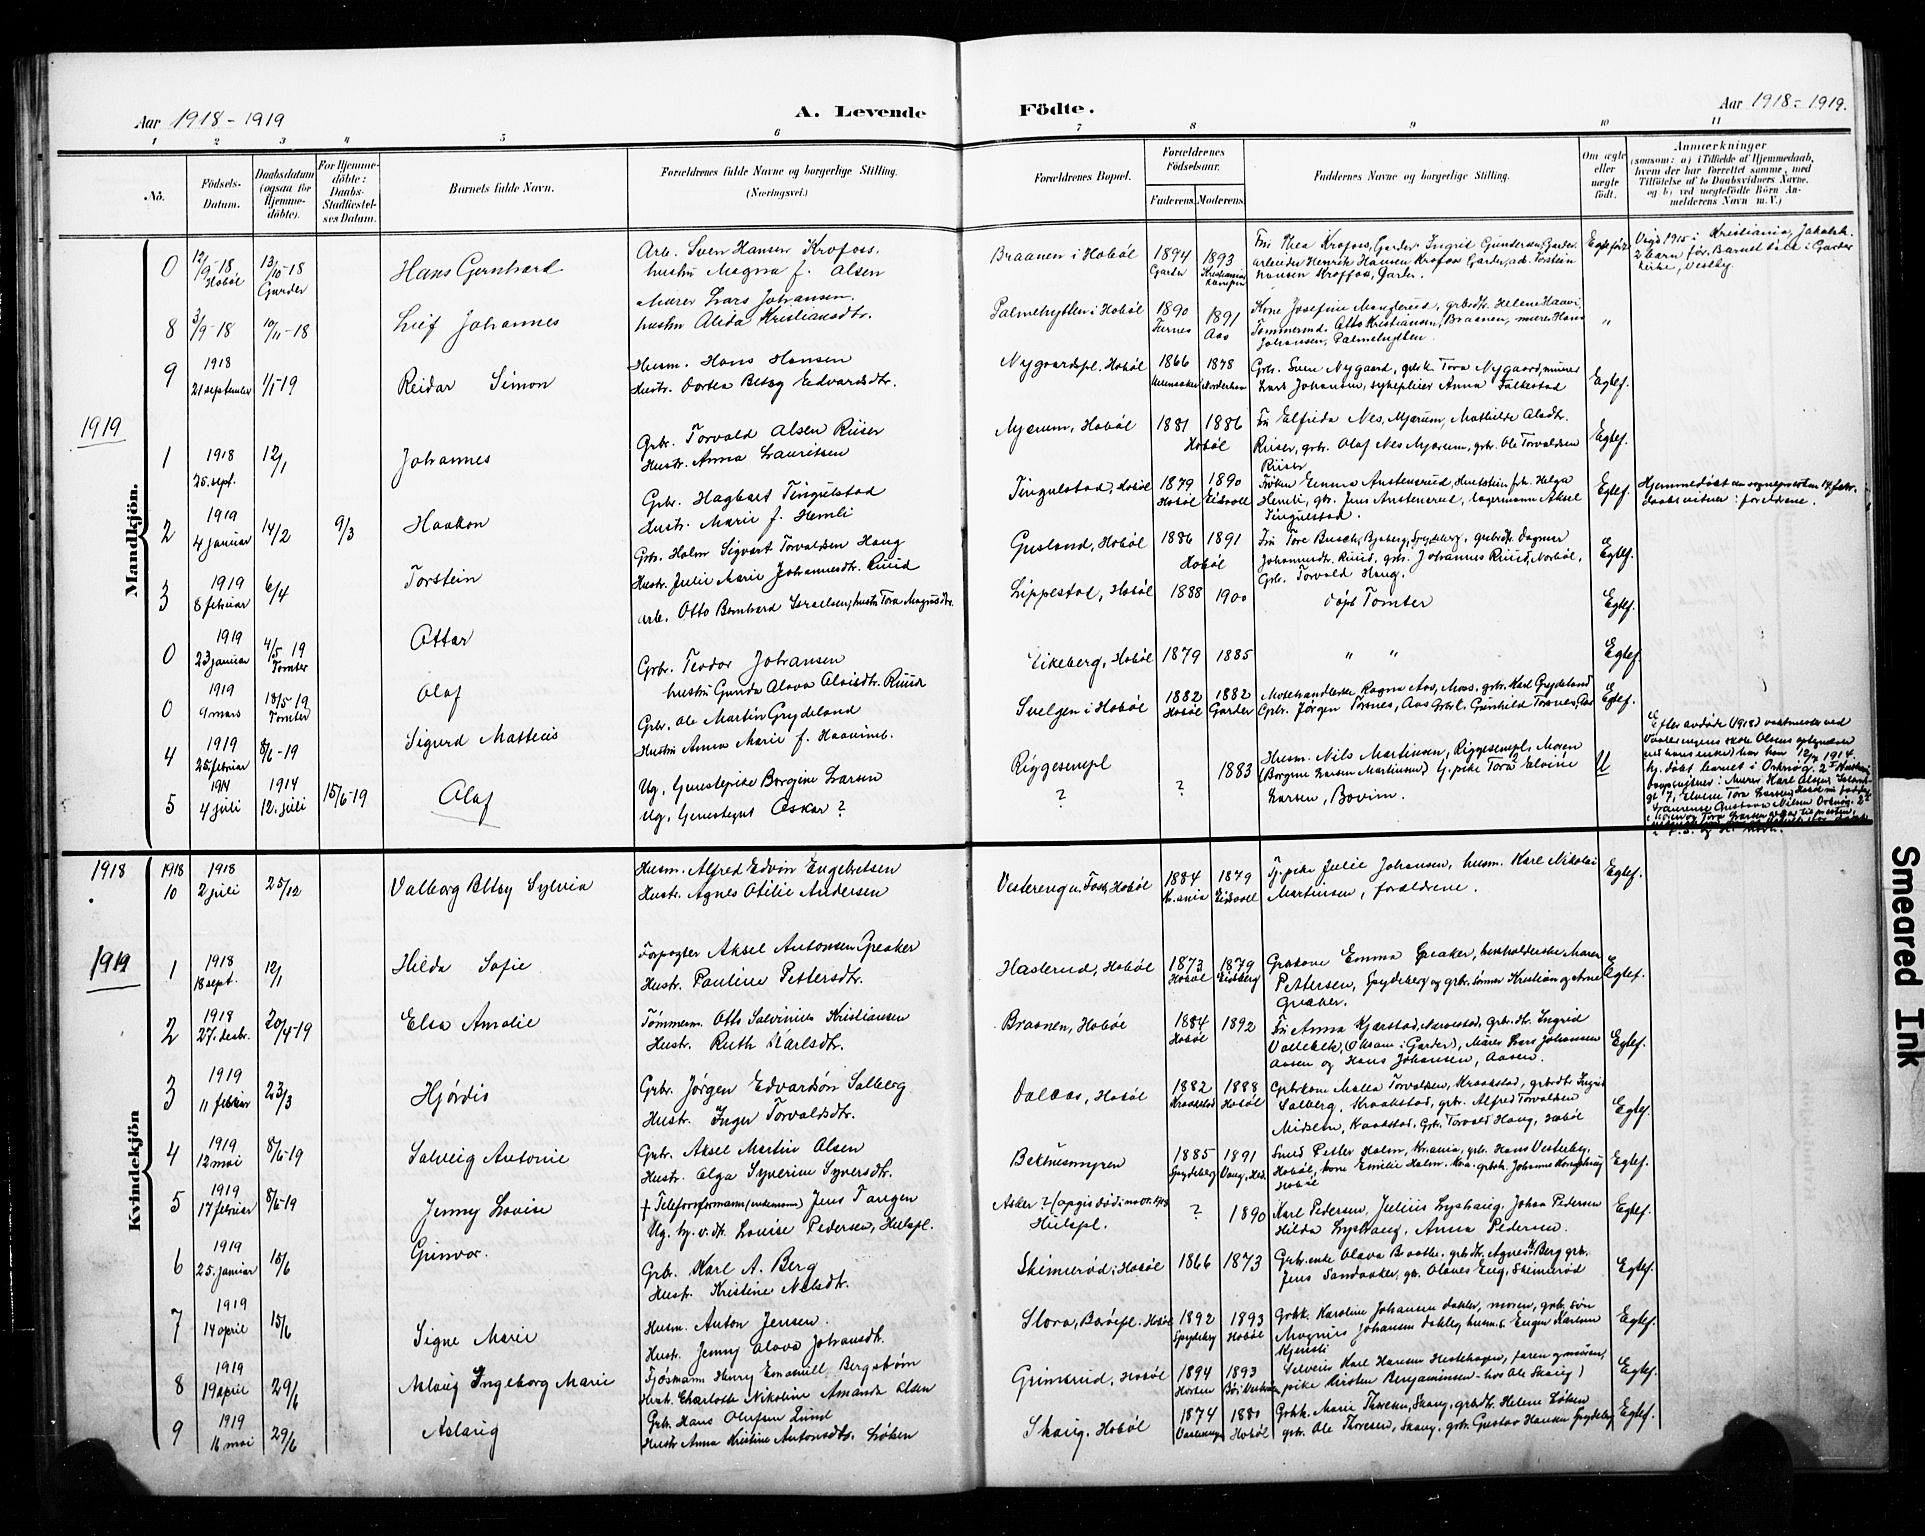 Aar 1918 - 1919
A. Levende Födte.
Aar 1918 - 1919.
1 2 3 4 5 6 7 8 9 10 11
No.
Födsels-Datum.
Daabsdatum (ogsaa for Hjemme-döbte).
For Hjemme-döbte: Daabs-Stadfæstel-ses Datum.
Barnets fulde Navn.
Forældrenes fulde Navne og borgerlige Stilling. (Næringsvei.)
Forældrenes Bopæl.
Forældrenes Födselsaar.
Faderens. Moderens.
Faddernes Navne og borgerlige Stilling.
Om ægte eller uægte födt.
Anmærkninger
(saasom: a) i Tilfælde af Hjemmedaab, hvem der har forrettet samme, med Tilföielse af to Daabsvidners Navne. og b) ved uægtefödte Börn An-melderens Navn m. V.)
Mandkjön.
0 12/9-18 Hobøl 13/10-18 Garder Hans Gernhard
Arb. Sven Hansen Krofoss.
hustru Magna f. Olsen
Braanen i Hobøl 1894 Garder 1893 Kristiania
Fru Thea Krofoss, Garder Ingrid Gundersen, Garder.
arbeider Henrik Hansen Krofoss Garder, ad. Torstein
Hansen Kroffoss, Garder.
Egtefødt
Vigd 1915 i Kristiania, Jakobsk.
2 barn før. Barnet døbt i Garder
kirke, Vestby.
8 3/9-18 10/11-18 Leif Johannes
Murer Lars Johansen.
hustru Alida Kristiansdtr.
Palmehytten i Hobøl 1890 1891 Aas
Kone Josefine Manglerud, grbsdtr. Helene Haavi,
Tømmermd. Otto Kristiansen, Braanen, murer Hans
Johansen, Palmehytten.
"
9 1918 21 september 1/1-19 Reidar Simon
Husm. Hans Hansen
Hustr. Dortea Betsy Edvardsdtr.
Nygaardspl. Hobøl 1866 1878
Grb. Sven Nygaard, grbsk. Tora Nygaard, murer
Lars Johansen, sykepleier Anna Falkestad
Egtef.
1919
1 1918 25. sept. 12/1 Johannes
Grbr. Torvald Olsen Riiser
Hustr. Anna Lauritsen
Mjærum, Hobøl 1881 1886 Hobøl
Fru Elfrida Nes, Mjærum, Mathilde Olsdtr.
Riiser, grbr. Olaf Nes Mjærum, grbr. Ole Torvaldsen
Riiser
Egtef.
2 1919 4 januar 14/2 9/3 Haakon
Grbr. Hagbart Tingulstad
Hustr. Marie f. Hemli
Tingulstad, Hobøl 1879 Hobøl 1890 Eidsvoll
Frøken Emma Austensrud, Helga
Hemli, gbr. Jens Austensrud, lagermann Aksel
Tingulstad.
Egtef.
Hjemmedøbt av sogneprosten 14. febr.
daabsvitner: forældrene.
3 1919 8 februar 6/4 Torstein
Grbr. Holm Sigvart Torvaldsen Haug
Hustr. Julie Marie Johannesdtr. Ruud
Gusland, Hobøl 1886 1891 Hobøl
Fru Tore Busch, Bjoberg, Spydeberg, grbsdtr. Dagmar
Johannesdtr. Ruud, grbr. Johannes Ruud, Norbøl,
Grb. Torvald Haug.
Egtef.
0 1919 23 januar 4/5 19 Tomter Ottar
arb. Otto Bernhard Israelsen, hustr. Tora Magnusdtr.
Lippestad, Hobøl 1888 1900
døpt Tomter
Egtef.
0 1919 9 mars 18/5-19 Tomter Olaf
Grbr. Teodor Johansen
hustru Gunda Olava Olaisdtr. Ruud
Eikeberg, Hobøl 1879 1885
" "
Egtef.
4 1919 25. februar 8/6-19 Sigurd Matteus
Grbr. Ole Martin Grydeland
Hustru Anna Marie f. Haavimb.
Svelgen i Hobøl 1882 Hobøl 1882 Garder
Motehandlerske Ragna Aas, Moss, grbr. Karl Grydeland
Grbr. Jørgen Torsnes, Aas Grbr.k. Gunhild Torsnes, Aas
Egtef.
5 1914 4 juli 1914 12. juli 15/6-19 Olaf
Ug. Jenestepike Borgine Larsen
Ug. Jenestegut Oskar ?
Riggesempl ? ? 1883
Husm. Nils Martinsen, Riggesempl. Moren
(Borgine Larsen Martinsen) tj.pike Tora Elvine
Larsen, Bovim.
U
1918
1918 10 1918 2 juli 25/12 Valborg Betsy Sylvia
Husm. Alfred Edvin Engebretsen
Hustr. Agnes Otilie Andersen
Vestereng u. Foss, Hobøl 1884 Kr.ania 1879 Eidsvoll
Tj. pike Julie Johansen, husm. Karl Nikolai
Martinsen, forældrene.
Egtef.
1919
Kvindekjön
1 1918 18 sept. 12/1 Hilda Sofie
Forpagter Aksel Antonsen Greaker
Hustr. Pauline Pettersdtr.
Haslerud, Hobøl 1873 Hobøl 1879 Eidsberg
Grbskone Emma Greaker, husholderske Maren
Pettersen, Spydeberg og grbr. sønner Kristian og Arne
Greaker.
Egtef.
2 1918 27. desbr. 20/4-19 Elsa Amalie
Tømmerm. Otto Salvinius Kristiansen
Hustr. Ruth Karlsdtr.
Braanen, Hobøl 1884 Hobøl 1892
Fru Anna Kjærstad, Næsodd, Grb.dtr. Ingrid
Vollebek, (Oksum i Garder), Murer Lars Johansen
Aasen og Hans Johansen, Aasen.
Egtef.
3 1919 11 februar 23/3 Hjørdis
Grbr. Jørgen Edvardsøn Solberg
Hustr. Inger Torvaldsdtr.
Dalaas, Hobøl 1882 Kraakstad 1888 Hobøl
Grbskone Malla Torvaldsen, Kraakstad, grbrdtr. Ingrid
Solberg, Kraakstad, grb. Alfred Torvaldsen
Midsem, Kraakstad, Grb. Torvald Haug, Hobøl
Egtef.
4 1919 12 mai 8/6-19 Solveig Antonie
Grbr. Aksel Martin Olsen
Hustr. Olga Syverine Syversdtr.
Bekhusmyren 1885 Spydeberg 1891 Vang, Hed.
Smed Petter Holm, Kr.ania, grb. Hans Vesterby,
Hobøl, kone Emilie Holm. Kra. grbsk. Johanne Kongshaug
Hobøl
Egtef.
5 1919 17 februar 8/6-19 Jenny Lovise
† Telefonformann (enkemann) Jens Tangen
Ug. tj. v. dtr. Louise Pedersen, Hulspl.
Asker ? (opgis død i nov. 1918
Hulspl. ? 1890
Karl Pedersen, Julius Lyshaug, Johan Pedersen
Hilda Lyshaug, Anna Pedersen.
Egtef.
6 1919 25. januar 15/6 Gunvor.
Grbr. Karl A. Berg
Hustr. Kristine Nilsdtr.
Skimerød i Hobøl 1866 1873
Grbr.enke Olava Braathe, grb.dtr. Agnes K Berg grb.
Jens Sandaaker, gb. Olaves Eng, Skimerød
Egtef.
7 1919 14 april 15/6 Signe Marie
Husm. Anton Jensen.
Hustr. Jenny Olava Johansdtr.
Slora, Barøspl. Hobøl 1892 Spydeberg 1893 Hobøl
Grbk. Karoline Johansen Dahler, moren, grb. søn
Magnus Johansen Dahler, husm.s. Eugen Karlsen
Kjensli
Egtef.
8 1919 19 april 29/6 Aslaug Ingeborg Marie
Fjøsmann Henry Emanuell Bergstrøm
Hustr. Charlotte Nikoline Amanda Olsen
Grimsrud, Hobøl 1894 Horten 1893
Selveier Karl Hansen Hestehagen, faren og moren,
pike Kirsten Benjaminsen - hos Ole Skaug)
Egtef.
9 1919 16 mai 29/6 Aslaug
Grb. Hans Olufsen Lund
Hustr. Anna Kristine Antonsdtr. Løken
Skaug, Hobøl 1874 1880 Hobøl
Grbk. Marie Thoresen, Skaug, grb.dtr. Helene Løken
grbr. Ole Thoresen, Skaug, grbr. Gustav Hansen Spydeberg
Egtef.
Smeared Ink